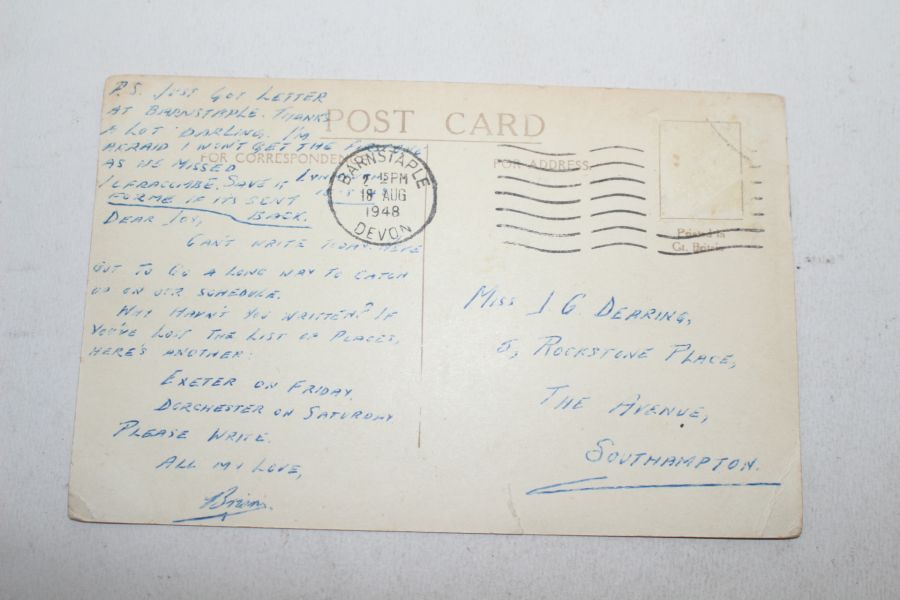 P.S. JUST GOT LETTER
AT BARNSTAPLE. THANKS
A LOT DARLING. I'M
AFRAID I WON'T GET THE
AS WE MISSED
ILFRACOMBE. SAVE IT
FOR ME IF IT'S SENT
BACK.
POST CARD
FOR CORRESPONDENCE
FOR ADDRESS
BARNSTAPLE
15 PM
18 AUG
1948
DEVON
Printed in
Gt. Britain
DEAR JOY,
CAN'T WRITE TODAY. HAVE
GOT TO GO A LONG WAY TO CATCH
UP ON OUR SCHEDULE.
WHY HAVN'T YOU WRITTEN? IF
YOU'VE LOST THE LIST OF PLACES,
HERE'S ANOTHER:
EXETER ON FRIDAY,
DORCHESTER ON SATURDAY
PLEASE WRITE.
ALL MY LOVE,
Brian.
MISS J. G. DEARING,
5, ROCKSTONE PLACE,
THE AVENUE,
SOUTHAMPTON.